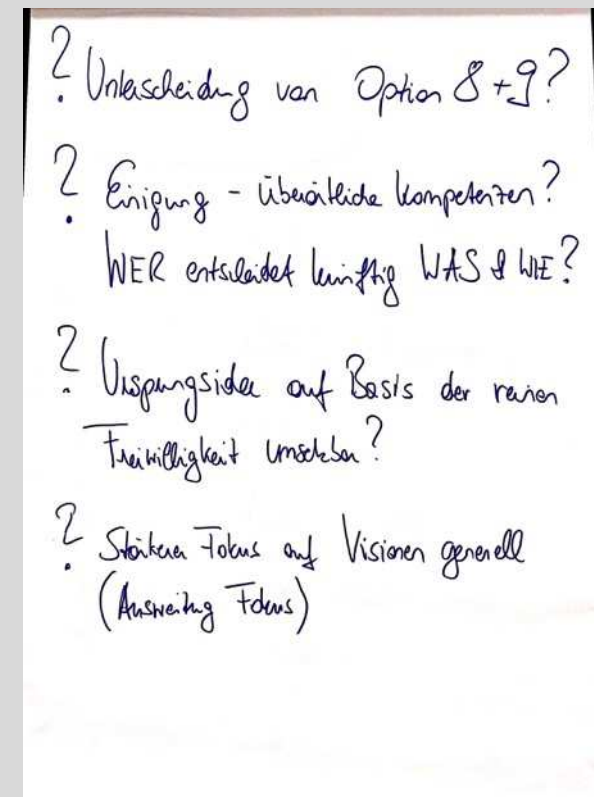 ? Unterscheidung von Option 8 + 9?
? Einigung - überörtliche Kompetenzen?
WER entscheidet künftig WAS & WIE?
? Ursprungsidee auf Basis der reinen
Freiwilligkeit umsetzbar?
? Stärkerer Fokus auf Visionen generell
(Ausweitung Fokus)